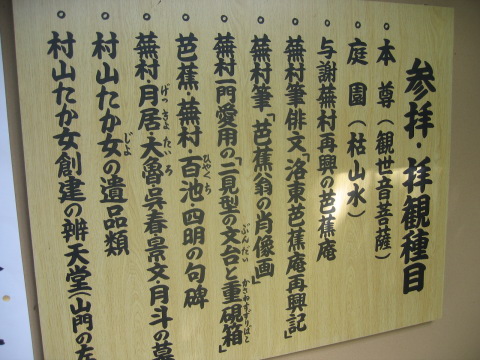 参拝・拝観種目
本尊（観世音菩薩）
庭園（枯山水）
与謝蕪村再興の芭蕉庵
蕪村筆俳文「洛東芭蕉庵再興記」
蕪村筆「芭蕉翁の肖像画」
蕪村一門愛用の「二見型の文台と重硯箱」
ぶんだい
かさねすずりばこ
芭蕉・蕪村・百池四明の句碑
ひゃくち
蕪村・月居・大魯呉春景文・月斗の墓
げっきょ
たいろ
村山たか女の遺品類
じょ
村山たか女創建の辨天堂（山門の左